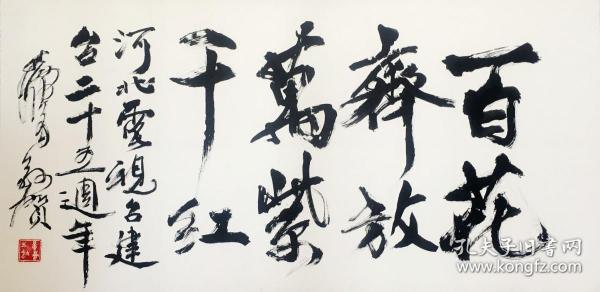 百花
齊放
萬紫
千红
河北電視台建
台二十五週年
敬賀
孔夫子旧书网
www.kongfz.com